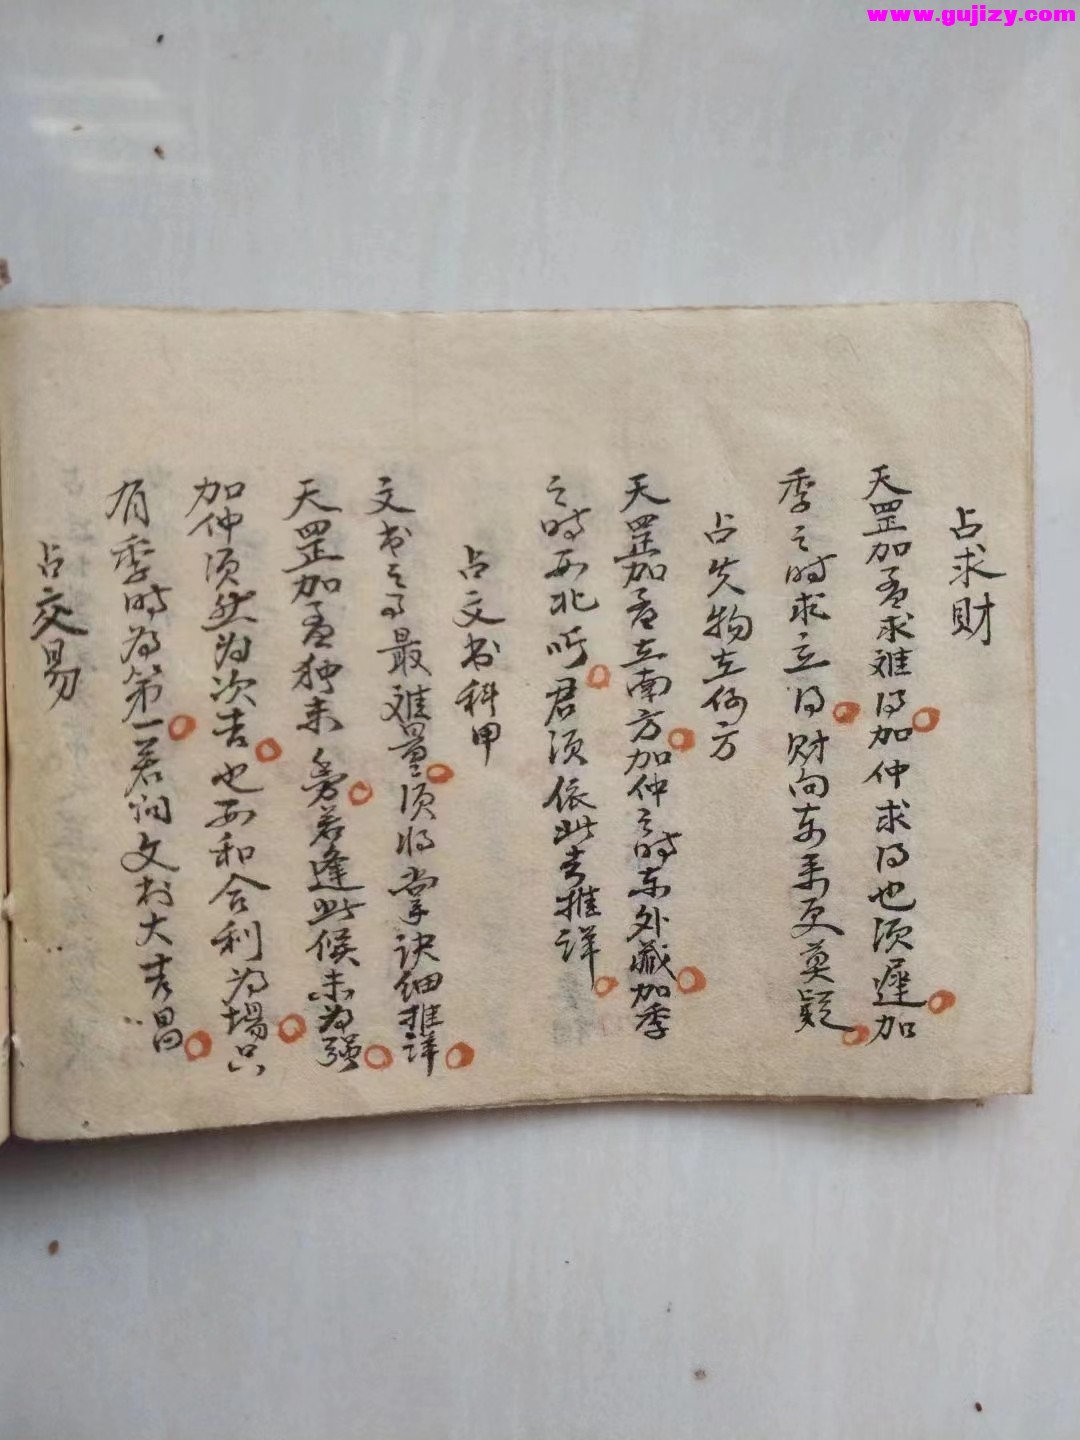 www.gujizy.com
占求財
天罡加孟求难得加仲求得也须遲加
季之时求立得财向东来更莫疑
占失物在何方
天罡加孟在南方加仲之时东外藏加季
之时西北听君须依此去推详
占文书科甲
文书之事最难量须将掌诀细推详
天罡加孟独未旁若逢此候未为强
加仲须然为次吉也而和合利为場只
有季时为第一若问文书大吉昌
占交易